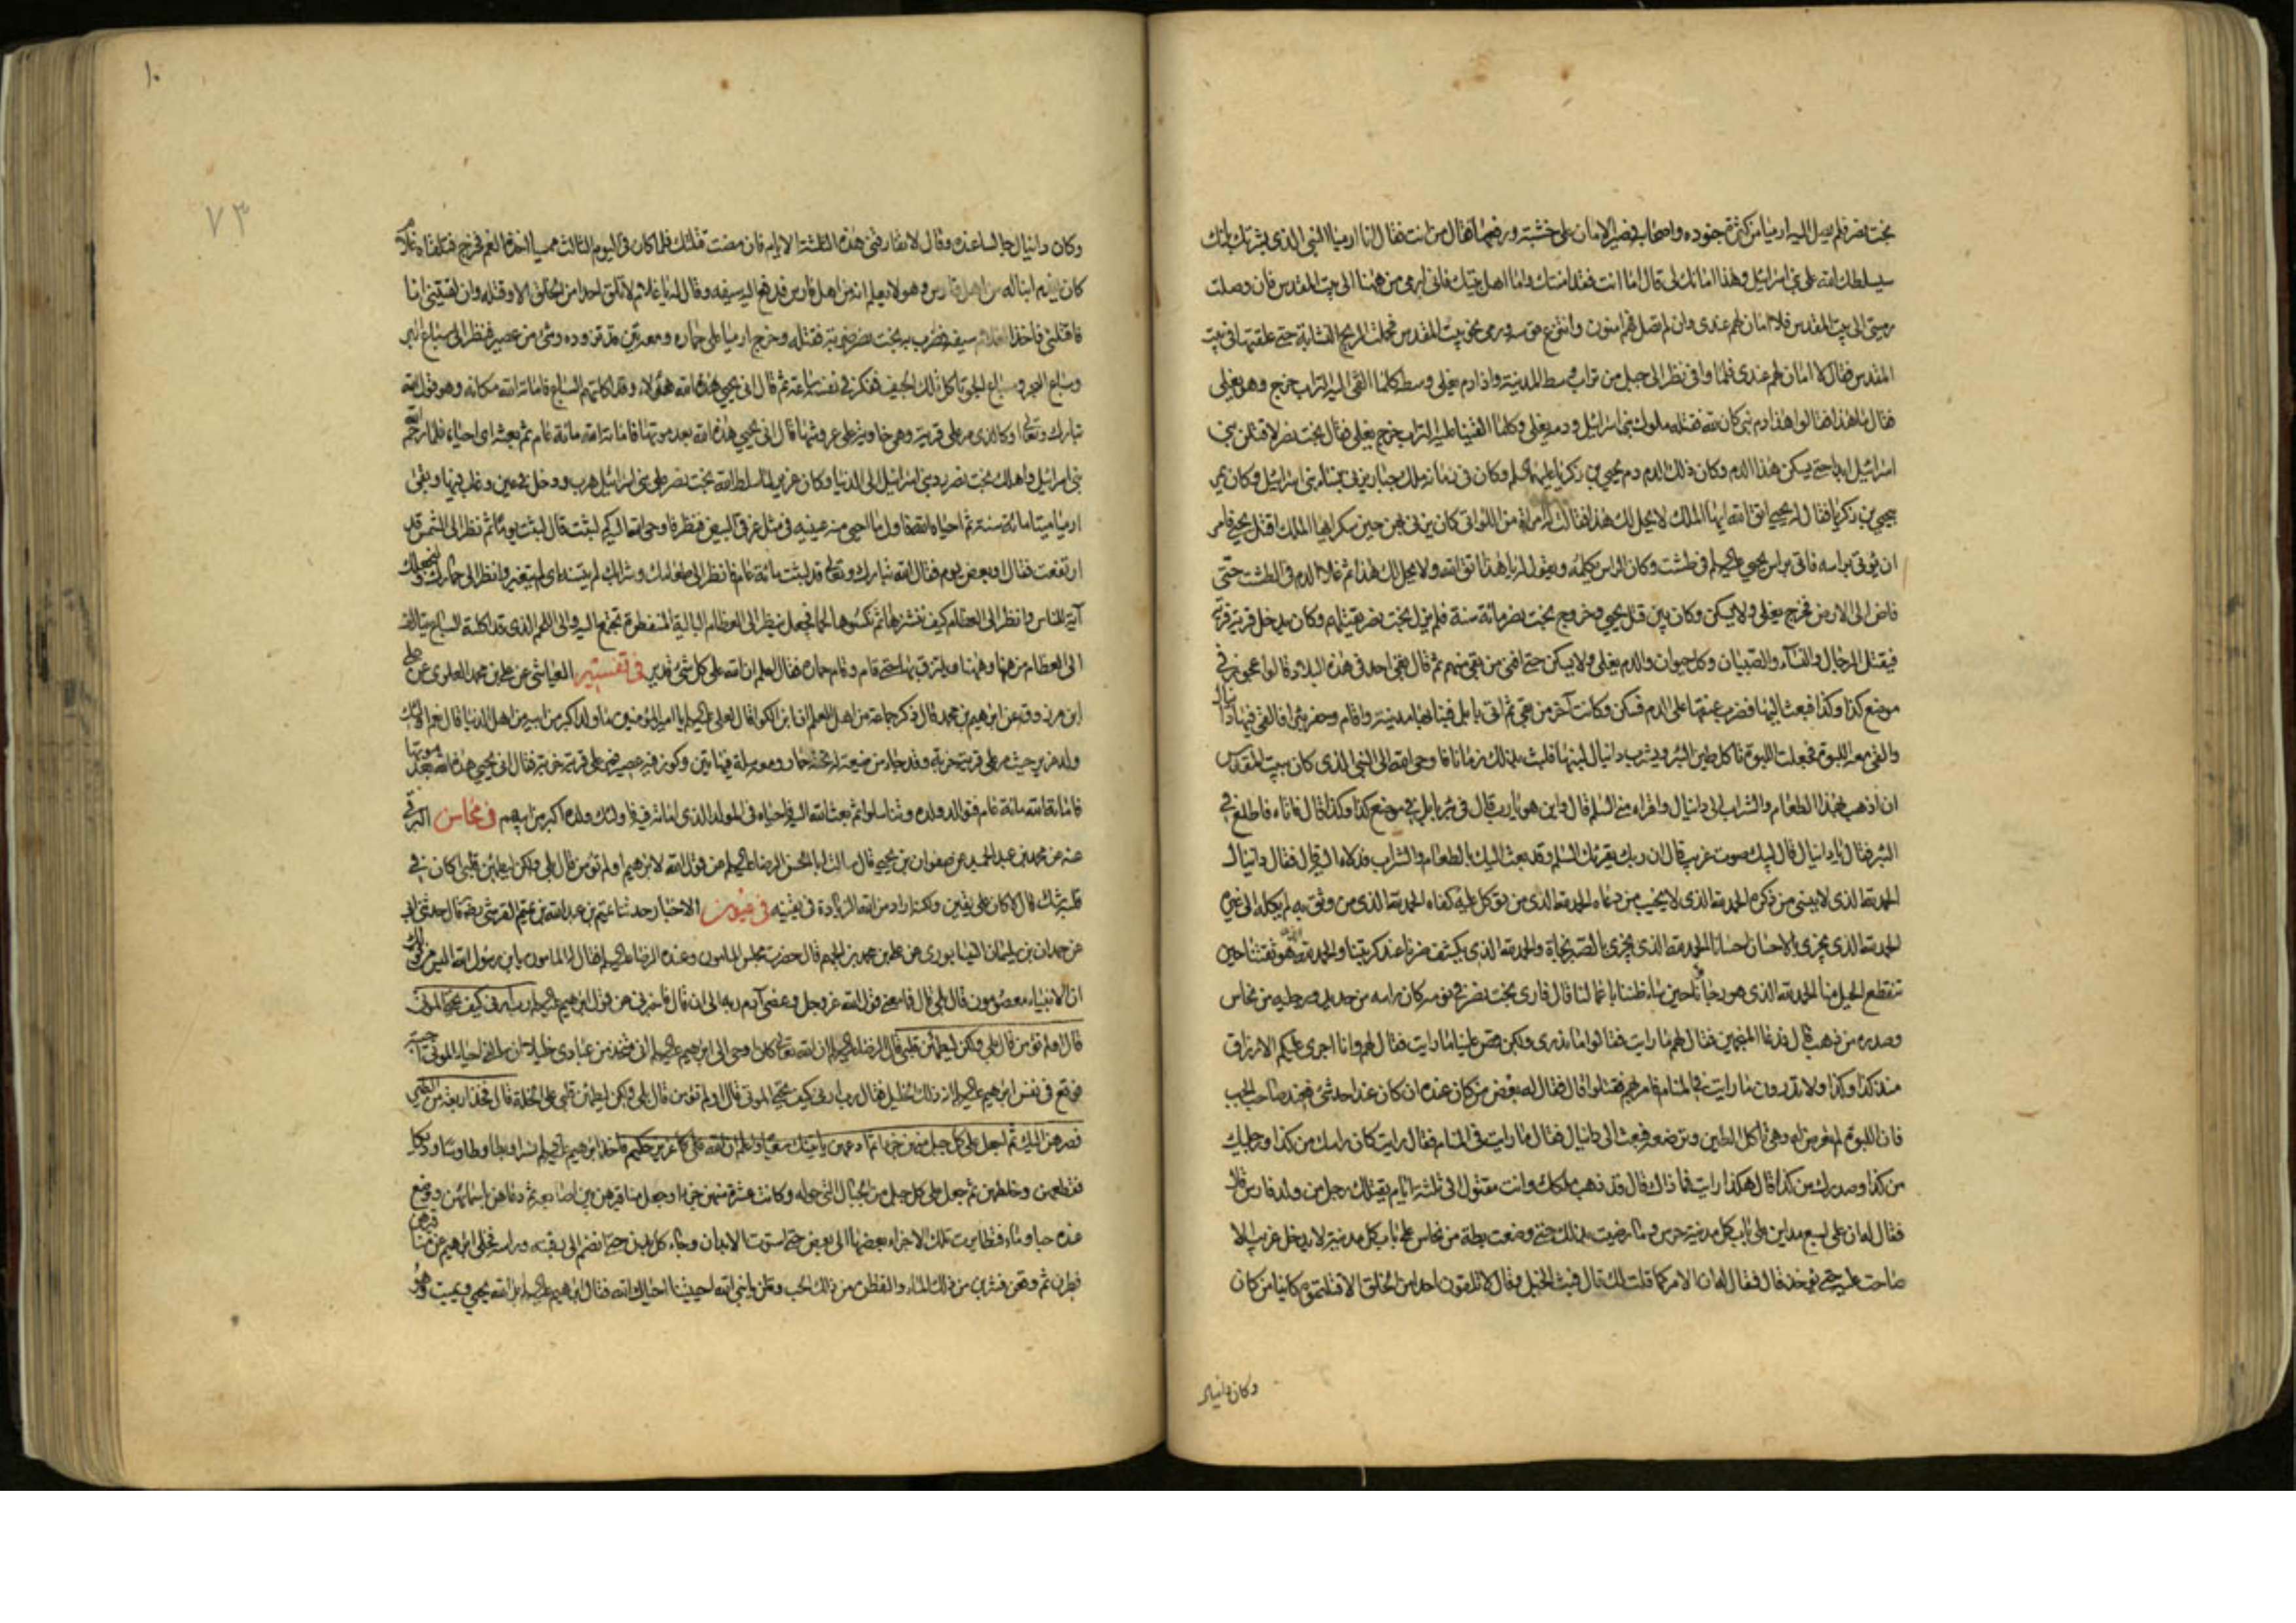 بخت نصر فلم يصل اليه ارميا من كثرة جنوده واصحابه فصير الامان على خشبة ورفعها فقال من انت فقال انا ارميا النبى الذى بشرتك بانك
سيسلطك الله على بنى اسرائيل وهذا امانك لى قال اما انت فقد امنتك واما اهل بيتك فانى ارمى من ههنا الى بيت المقدس فان وصلت
رميتى الى بيت المقدس فلا امان لهم عندى وان لم تصل فهم امنون وانتزع قوسه ورمى نحو بيت المقدس فحملت الريح النشابة حتى علقتها فى بيت
المقدس فقال لا امان لهم عندى فلما وافى نظر الى جبل من تراب وسط المدينة واذا دم يغلى وسطه كلما القى اليه التراب خرج وهو يغلى
فقال ما هذا فقالوا هذا دم نبى كان لله فقتله ملوك بنى اسرائيل ودمه يغلى وكلما القينا عليه التراب خرج يغلى فقال بخت نصر لاقتلن بنى
اسرائيل ابدا حتى يسكن هذا الدم وكان ذلك الدم دم يحيى بن زكريا عليهما السلم وكان فى زمانه ملك جبار يزنى بنساء بنى اسرائيل وكان يمر
بيحيى بن زكريا فقال له يحيى اتق الله ايها الملك لا يحل لك هذا فقالت له امراة من اللواتى كان يزنى بهن حين سكر ايها الملك اقتل يحيى فامر
ان يؤتى براسه فاتى براس يحيى عليه السلم فى طشت وكان الراس يكلمه ويقول له يا هذا اتق الله ولا يحل لك هذا ثم غلا الدم فى الطشت حتى
فاض الى الارض فخرج يغلى ولا يسكن وكان بين قتل يحيى وخروج بخت نصر مائة سنة فلم يزل بخت نصر يقتلهم وكان يدخل قرية قرية
فيقتل الرجال والنساء والصبيان وكل حيوان والدم يغلى ولا يسكن حتى افنى من بقى منهم ثم قال بقى احد فى هذه البلاد قالوا عجوز فى
موضع كذا وكذا فبعث اليها فضرب عنقها على الدم فسكن وكانت آخر من بقى ثم اتى بابل فبنا بها مدينة واقام وحفر بئرا فالقى فيها دانيال
والقى معه اللبوة فجعلت اللبوة تاكل طين البئر ويشرب دانيال لبنها فلبث بذلك زمانا فاوحى الله الى النبى الذى كان ببيت المقدس
ان اذهب بهذا الطعام والشراب الى دانيال واقراه منى السلم قال واين هو يا رب قال فى بئر بابل فى موضع كذا وكذا قال فاتاه فاطلع فى
البئر فقال يا دانيال قال لبيك صوت غريب قال ان ربك يقرئك السلم وقد بعث اليك بالطعام والشراب فدلاه اليه قال فقال دانيال
الحمد لله الذى لا ينسى من ذكره الحمد لله الذى لا يخيب من دعاه الحمد لله الذى من توكل عليه كفاه الحمد لله الذى من وثق به لم يكله الى غيره
الحمد لله الذى يجزى بالاحسان احسانا الحمد لله الذى يجزى بالصبر نجاة والحمد لله الذى يكشف ضرنا عند كربتنا والحمد لله الذى هو ثقتنا حين
تنقطع الحيل منا الحمد لله الذى هو رجاؤنا حين ساء ظننا باعمالنا قال فارى بخت نصر فى نومه كان راسه من حديد ورجليه من نحاس
وصدره من ذهب قال فدعا المنجمين فقال لهم ما رايت فقالوا ما ندرى ولكن قص علينا ما رايت فقال لهم وانا اجرى عليكم الارزاق
منذ كذا وكذا ولا تدرون ما رايت فى المنام فامر بهم فقتلوا قال فقال له بعض من كان عنده ان كان عند احد شئ فعند صاحب الجب
فان اللبوة لم تعرض له وهى تاكل الطين وترضعه فبعث الى دانيال فقال ما رايت فى المنام فقال رايت كان راسك من كذا ورجليك
من كذا وصدرك من كذا قال هكذا رايت فما ذاك قال قد ذهب ملكك وانت مقتول الى ثلثة ايام يقتلك رجل من ولد فارس قال
فقال له ان على لسبع مداين على باب كل مدينة حرس وما رضيت بذلك حتى وضعت بطة من نحاس على باب كل مدينة لا يدخل غريب الا
صاحت عليه حتى يؤخذ قال فقال له ان الامر كما قلت لك قال فبث الخيل وقال لا تلقون احدا من الخلق الا قتلتموه كائنا من كان
وكان دانيال
١٠
٧٣
وكان دانيال جالسا عنده وقال لا تفارقنى هذه الثلثة الايام فان مضت قتلتك فلما كان فى اليوم الثالث ممسيا اخذه الغم فخرج فتلقاه غلام
كان يخدم ابنا له من اهل فارس وهو لا يعلم انه من اهل فارس فدفع اليه سيفه وقال له يا غلام لا تلق احدا من الخلق الا وقتلته وان لقيتنى انا
فاقتلنى فاخذ الغلام سيفه فضرب به بخت نصر ضربة فقتله وخرج ارميا على حماره ومعه تين قد تزوده وشئ من عصير فنظر الى سباع البر
وسباع البحر وسباع الجو تاكل تلك الجيف ففكر فى نفسه ساعة ثم قال انى يحيى هذه الله هؤلاء وقد اكلتهم السباع فاماته الله مكانه وهو قول الله
تبارك وتعالى او كالذى مر على قرية وهى خاوية على عروشها قال انى يحيى هذه الله بعد موتها فاماته الله مائة عام ثم بعثه اى احياه فلما رحم الله
بنى اسرائيل واهلك بخت نصر رد بنى اسرائيل الى الدنيا وكان عزير لما سلط الله بخت نصر على بنى اسرائيل هرب ودخل فى عين وغاب فيها وبقى
ارميا ميتا مائة سنة ثم احياه الله فاول ما احيى منه عينيه فى مثل غرقئ البيض فنظر فاوحى الله اليه كم لبثت قال لبثت يوما ثم نظر الى الشمس قد
ارتفعت فقال او بعض يوم فقال الله تبارك وتعالى قد لبثت مائة عام فانظر الى طعامك وشرابك لم يتسنه اى لم يتغير وانظر الى حمارك ولنجعلك
آية للناس وانظر الى العظام كيف ننشزها ثم نكسوها لحما فجعل ينظر الى العظام البالية المنفطرة تجتمع اليه والى اللحم الذى قد اكلته السباع يتالف
الى العظام من هنا وههنا ويلتزق بها حتى قام وقام حماره فقال اعلم ان الله على كل شئ قدير فى تفسير العياشى عن على بن محمد العلوى عن على
ابن مرزوق عن ابرهيم بن محمد قال ذكر جماعة من اهل العلم ان ابن الكوا قال لعلى عليه السلم يا امير المؤمنين ما ولد اكبر من ابيه من اهل الدنيا قال نعم اولئك
ولد عزير حيث مر على قرية خربة وقد جاء من ضيعة له تحته حمار ومعه سلة فيها تين وكوز فيه عصير فمر على قرية خربة فقال انى يحيى هذه الله بعد موتها
فاماته الله مائة عام فتوالد ولده وتناسلوا ثم بعث الله اليه فاحياه فى المولد الذى اماته فيه فاولئك ولده اكبر من ابيهم فى محاسن البرقى
عنه عن محمد بن عبد الحميد عن صفوان بن يحيى قال سالت ابا الحسن الرضا عليه السلم عن قول الله لابرهيم اولم تؤمن قال بلى ولكن ليطمئن قلبى اكان فى
قلبه شك قال لا كان على يقين ولكنه اراد من الله الزيادة فى يقينه فى عيون الاخبار حدثنا تميم بن عبد الله بن تميم القرشى رضه قال حدثنى ابى
عن حمدان بن سليمان النيسابورى عن على بن محمد بن الجهم قال حضرت مجلس المامون وعنده الرضا عليه السلم فقال له المامون يا بن رسول الله اليس من قولك
ان الانبياء معصومون قال بلى قال فما معنى قول الله عز وجل وعصى آدم ربه الى ان قال فاخبرنى عن قول ابرهيم عليه السلم رب ارنى كيف تحيى الموتى
قال اولم تؤمن قال بلى ولكن ليطمئن قلبى قال الرضا عليه السلم ان الله تعالى كان اوحى الى ابرهيم عليه السلم انى متخذ من عبادى خليلا ان سالنى احياء الموتى اجبته
فوقع فى نفس ابرهيم عليه السلم انه ذلك الخليل فقال رب ارنى كيف تحيى الموتى قال اولم تؤمن قال بلى ولكن ليطمئن قلبى على الخلة قال فخذ اربعة من الطير
فصرهن اليك ثم اجعل على كل جبل منهن جزءا ثم ادعهن ياتينك سعيا واعلم ان الله عزيز حكيم فاخذ ابرهيم عليه السلم نسرا وبطا وطاوسا وديكا
فقطعهن وخلطهن ثم جعل على كل جبل من الجبال التى حوله وكانت عشرة منهن جزءا وجعل مناقيرهن بين اصابعه ثم دعاهن باسمائهن ووضع
عنده حبا وماء فتطايرت تلك الاجزاء بعضها الى بعض حتى استوت الابدان وجاء كل بدن حتى انضم الى رقبته وراسه فخلى ابرهيم عن مناقيرهن
فطرن ثم وقعن فشربن من ذلك الماء والتقطن من ذلك الحب وقلن يا نبى الله احييتنا احياك الله فقال ابرهيم عليه السلم بل الله يحيى ويميت وهو